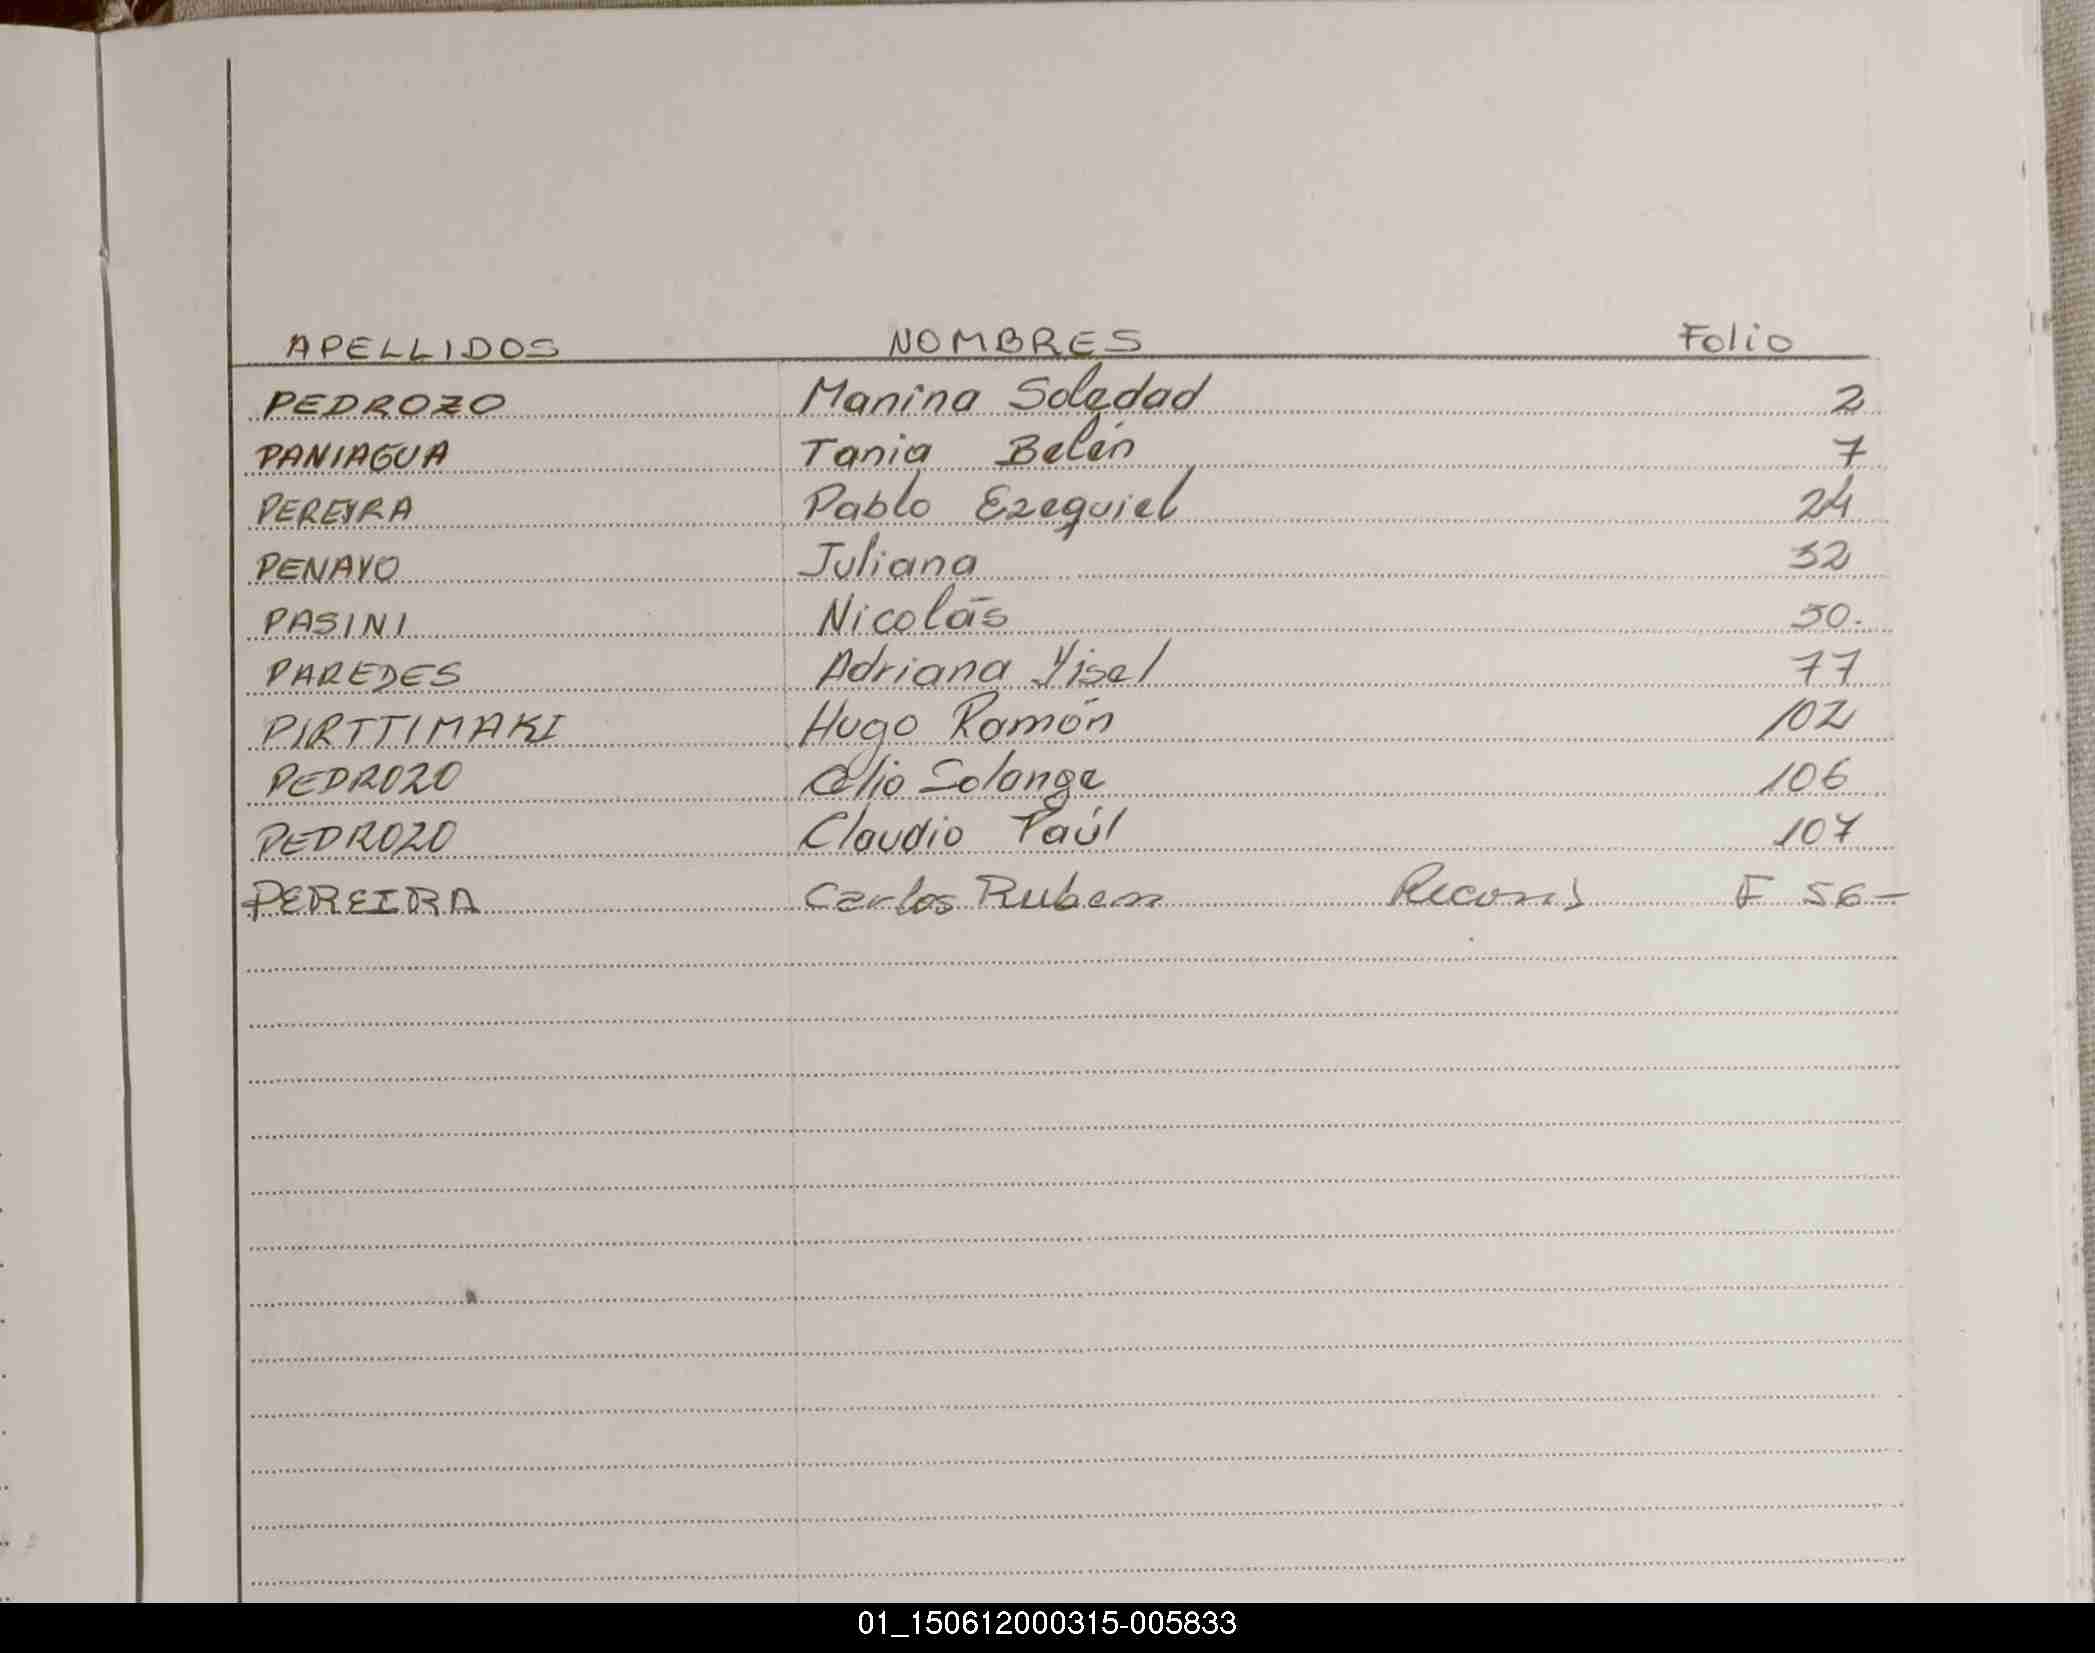 APELLIDOS NOMBRES Folio
PEDROZO Manina Soledad 2
PANIAGUA Tania Belén 7
PEREYRA Pablo Ezequiel 24
PENAYO Juliana 32
PASINI Nicolás 50.
PAREDES Adriana Yisel 77
PIRTTIMAKI Hugo Ramón 102
PEDROZO Solange 106
PEDROZO Claudio Paúl 107
PEREIRA Carlos Ruben F 56-
01_150612000315-005833